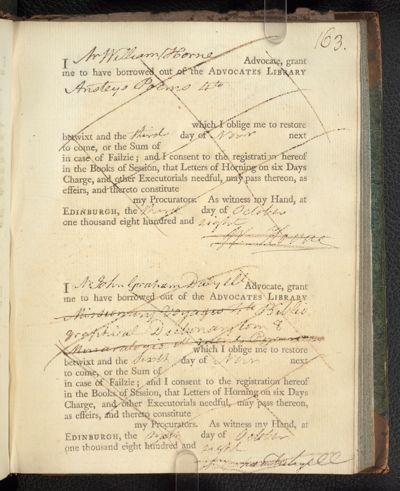 163.
I Mr William Horne Advocate, grant
me to have borrowed out of the ADVOCATES LIBRARY
Ansteys Poems 4to
which I oblige me to restore
betwixt and the third day of Novr next
to come, or the Sum of
in case of Failzie; and I consent to the registration hereof
in the Books of Session, that Letters of Horning on six Days
Charge, and other Executorials needful, may pass thereon, as
effeirs, and thereto constitute
my Procurators. As witness my Hand, at
EDINBURGH, the third day of October
one thousand eight hundred and eight
Horne
I Mr John Graham Dalyell Advocate, grant
me to have borrowed out of the ADVOCATES LIBRARY
Missionary Voyage 4to Biblio
graphical Dictionary tom 8
which I oblige me to restore
betwixt and the sixth day of Novr next
to come, or the Sum of
in case of Failzie; and I consent to the registration hereof
in the Books of Session, that Letters of Horning on six Days
Charge, and other Executorials needful, may pass thereon,
as effeirs, and thereto constitute
my Procurators. As witness my Hand, at
EDINBURGH, the sixth day of October
one thousand eight hundred and eight
Dalyell